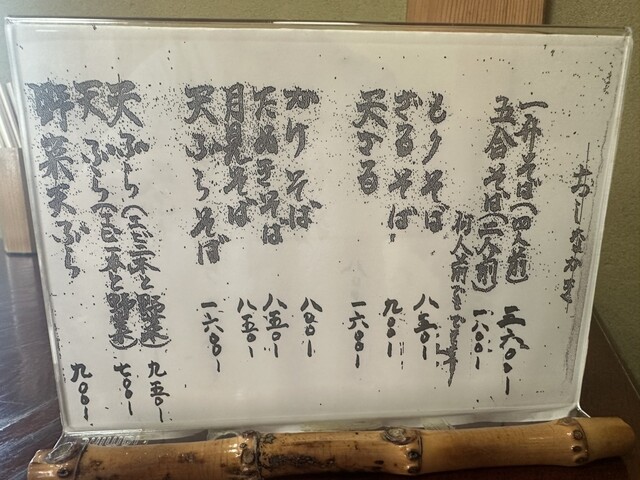 おしながき
一升そば(四人前) 三六〇〇-
五合そば(二人前) 一八〇〇-
何人前でもできます
もりそば 八〇〇-
ざるそば 九〇〇-
天ざる 一六〇〇-
かけそば 八〇〇-
たぬきそば 八五〇-
月見そば 八五〇-
天ぷらそば 一六〇〇-
天ぷら(えび二本と野菜) 九五〇-
天ぷら(えび一本と野菜) 七〇〇-
野菜天ぷら 九〇〇-